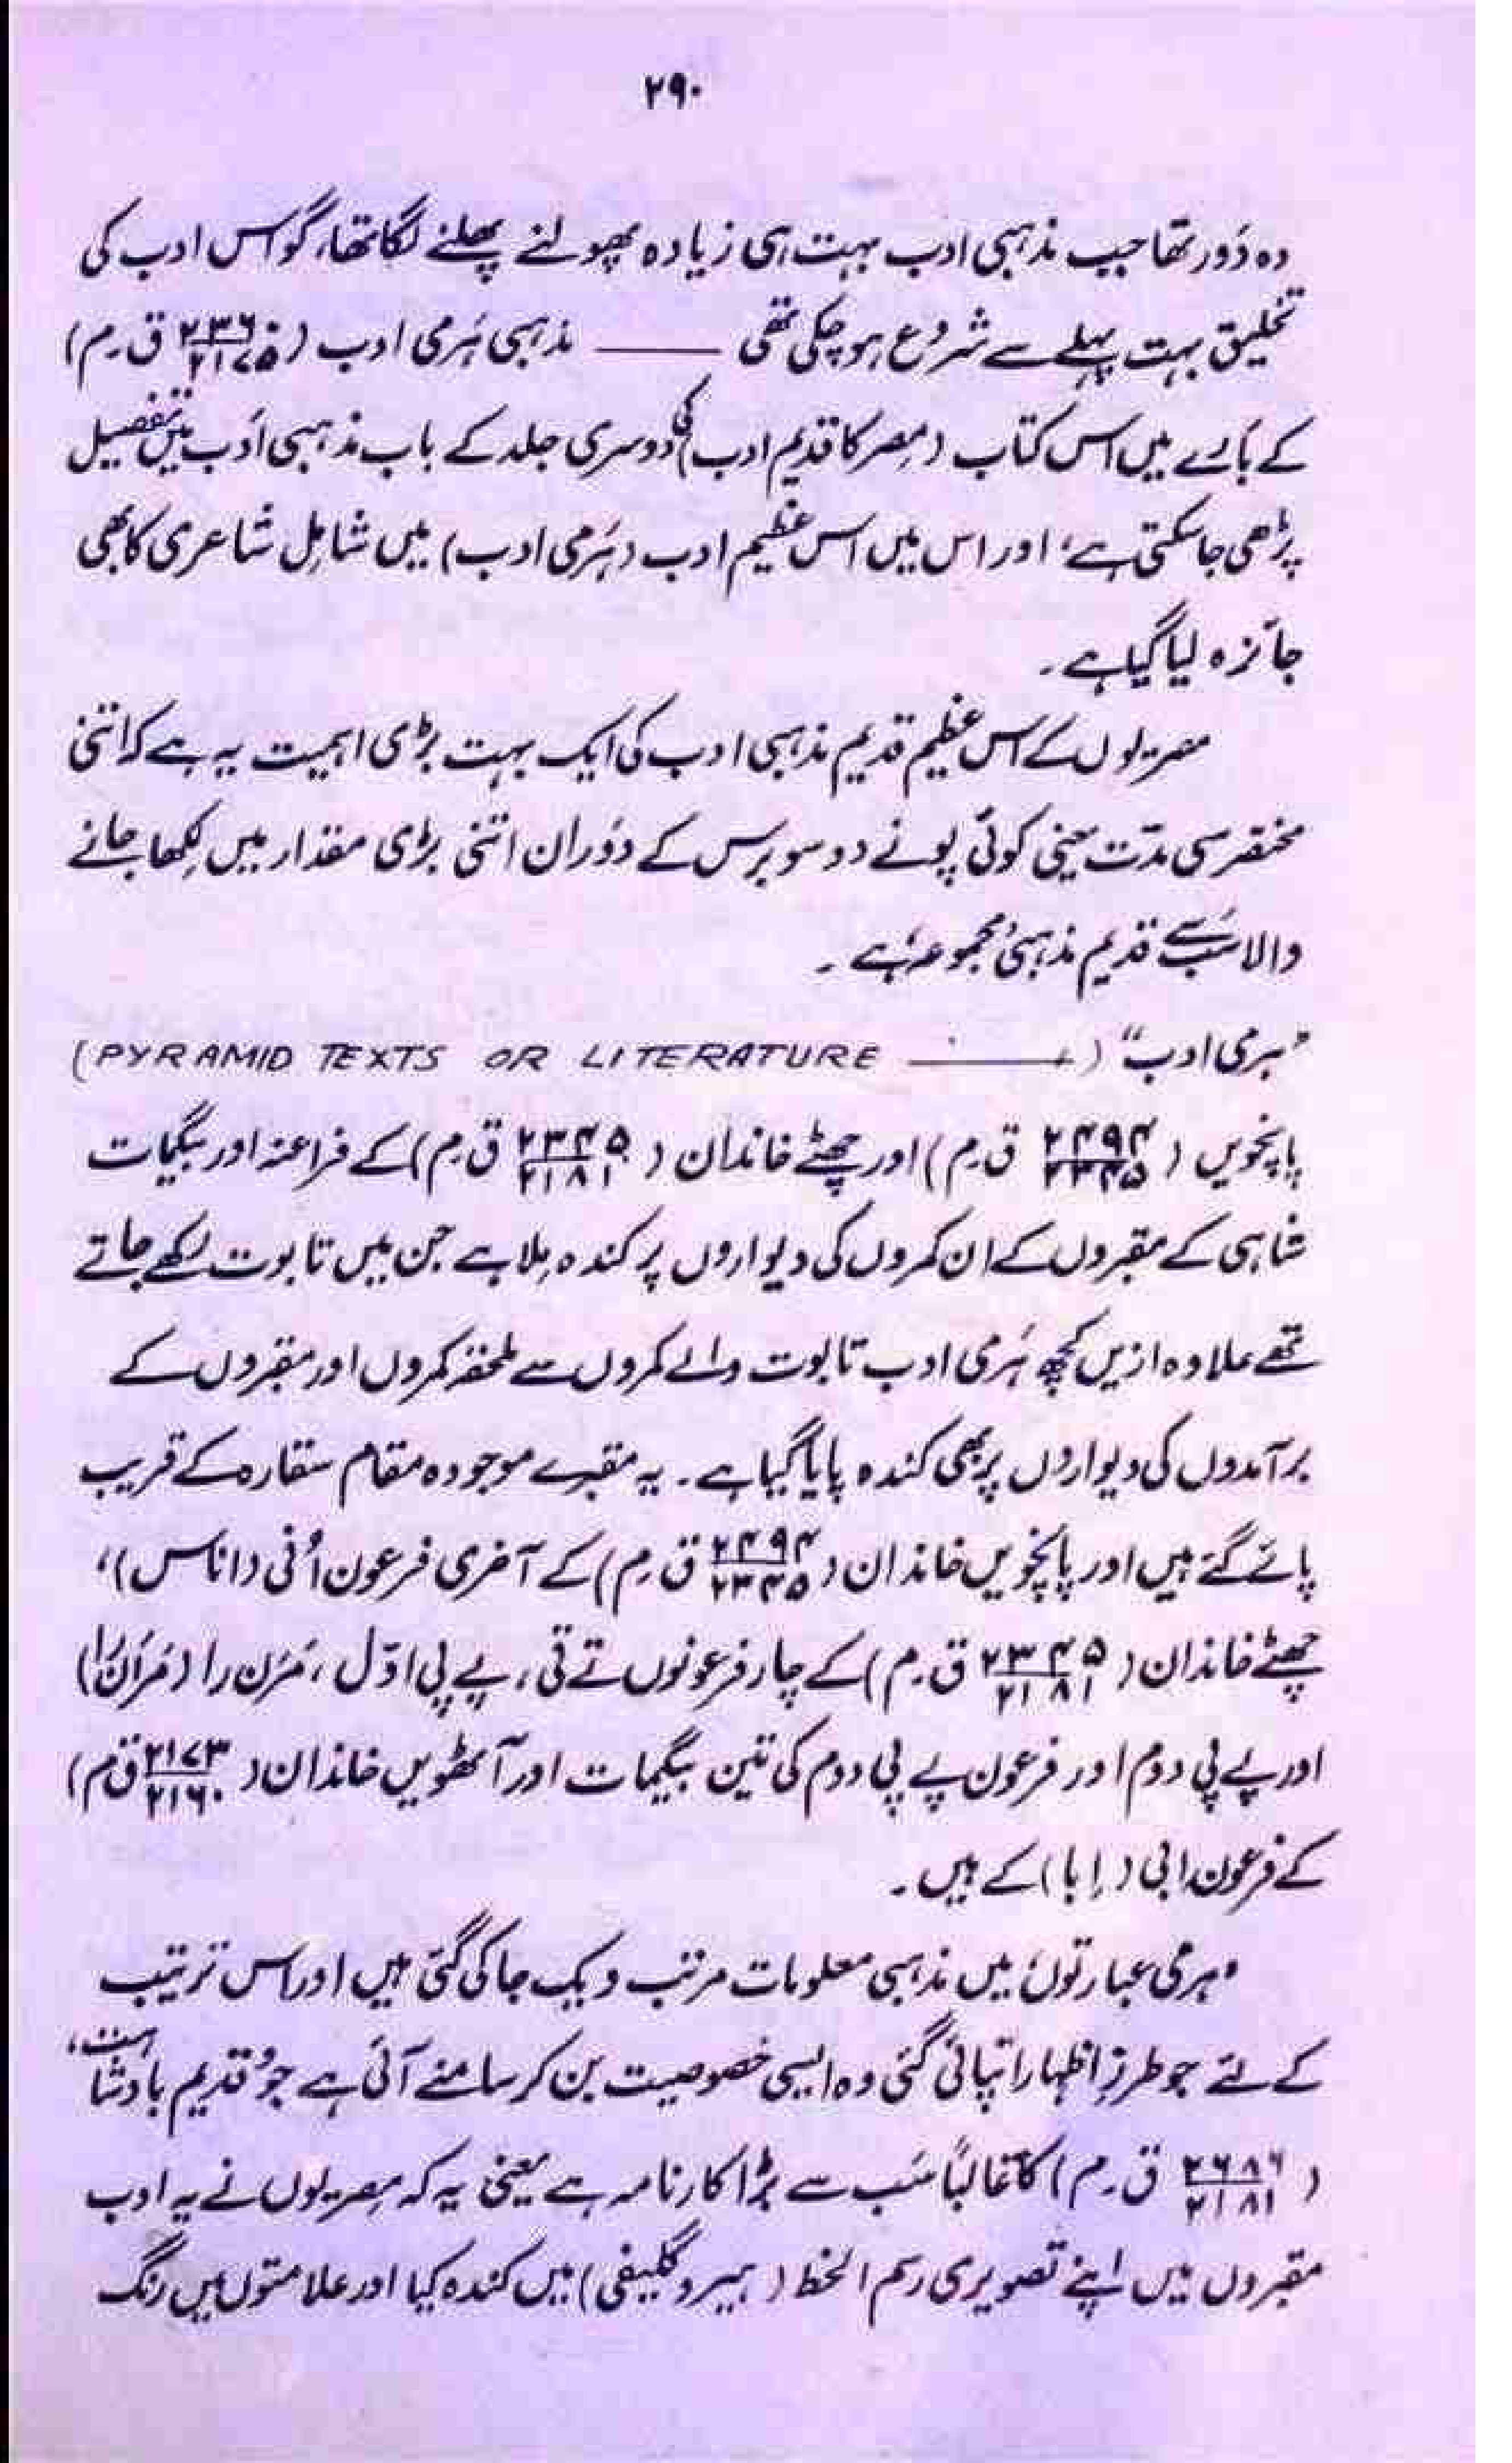 ۲۹۰
وہ دَور تھا جب مذہبی ادب بہت ہی زیادہ پھولنے پھلنے لگا تھا، گو اس ادب کی
تخلیق بہت پہلے سے شروع ہو چکی تھی ——— مذہبی ہَرمی ادب (۲۳۶۰/۲۱۷۵ ق.م)
کے بارے میں اس کتاب (مصر کا قدیم ادب) کی دوسری جلد کے باب مذہبی اَدب میں تفصیل
پڑھی جاسکتی ہے؛ اور اس میں اس عظیم ادب (ہَرمی ادب) میں شامِل شاعری کا بھی
جائزہ لیا گیا ہے۔
مصریوں کے اس عظیم قدیم مذہبی ادب کی ایک بہت بڑی اہمیت یہ ہے کہ اتنی
مختصر سی مدّت یعنی کوئی پونے دو سو برس کے دَوران اتنی بڑی مقدار میں لِکھا جانے
والا سَب سے قدیم مذہبی مجموعہ ہے۔
"ہرمی ادب" (——— PYRAMID TEXTS OR LITERATURE)
پانچویں (۲۴۹۴/۲۳۴۵ ق.م) اور چھٹے خاندان (۲۳۴۵/۲۱۸۱ ق.م) کے فراعنہ اور بیگمات
شاہی کے مقبروں کے ان کمروں کی دیواروں پر کندہ مِلا ہے جن میں تابوت رکھے جاتے
تھے علاوہ ازیں کچھ ہَرمی ادب تابوت والے کمروں سے ملحقہ کمروں اور مقبروں کے
برآمدوں کی دیواروں پر بھی کندہ پایا گیا ہے۔ یہ مقبرے موجودہ مقام سقارہ کے قریب
پائے گئے ہیں اور پانچویں خاندان (۲۴۹۴/۲۳۴۵ ق.م) کے آخری فرعون اُنی (اناس)،
چھٹے خاندان (۲۳۴۵/۲۱۸۱ ق.م) کے چار فرعونوں تے تی، پے پی اوّل، مَرن را (مَرَان را)
اور پے پی دوم اور فرعون پے پی دوم کی تین بیگمات اور آٹھویں خاندان (۲۱۷۳/۲۱۶۰ ق م)
کے فرعون ابی (اِبا) کے ہیں۔
"ہرمی عبارتوں" میں مذہبی معلومات مرتب و یک جا کی گئی ہیں اور اس ترتیب
کے لئے جو طرزِ اظہار اپنائی گئی وہ ایسی خصوصیت بن کر سامنے آئی ہے جو "قدیم بادشاہت"
(۲۶۸۶/۲۱۸۱ ق.م) کا غالباً سَب سے بڑا کارنامہ ہے یعنی یہ کہ مصریوں نے یہ ادب
مقبروں میں اپنے تصویری رسم الخط (ہیروگلیفی) میں کندہ کیا اور علامتوں میں رنگ